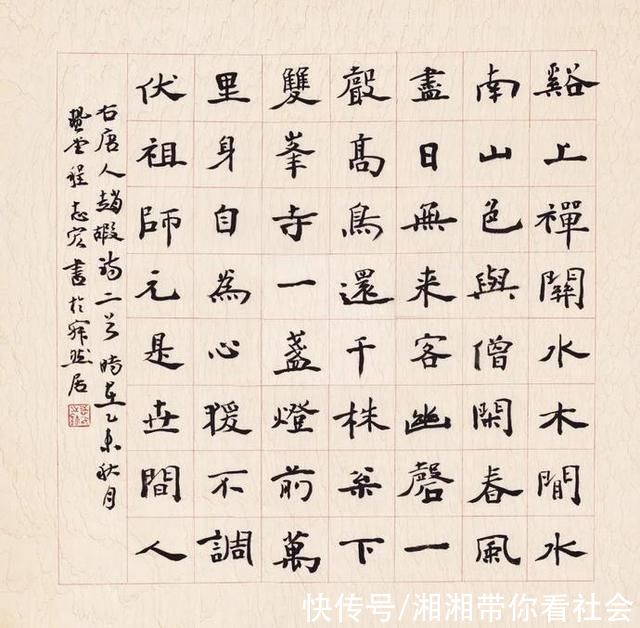 谿上禪關水木間水
南山色與僧閑春風
盡日無来客幽磬一
聲高鳥還千株枀下
雙峯寺一盞燈前萬
里身自為心猨不調
伏祖師元是世間人
右唐人趙嘏詩二首時在乙未秋月
堂程志宏書於寂然居
快传号/湘湘带你看社会